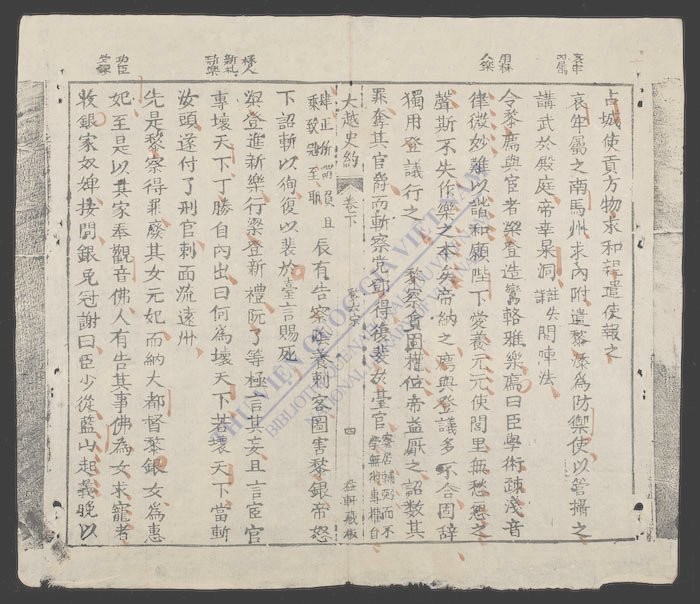 占城使貢方物求和詔遣使報之
哀牢屬之南馬州求內附遣黎為防禦使以管攝之
講武於殿庭帝幸杲洞閱陣法
令黎廌與宦者梁登造鸞輅雅樂廌曰臣學術疎淺音
律微妙難以諧和願陛下愛養元元使閭里無愁怨之
聲斯不失作樂之本矣帝納之廌與登議多不合固辭
獨用登議行之 黎察貪固權位帝益厭之詔數其
罪奪其官爵而斬察党鄧得復裴於臺官
察居輔弼而不
學無術專權自
大越史約 卷下 黎太宗 四 在軒藏板
肆正所謂負且
乘致寇至
辰有告察陰養刺客圖害黎銀帝怒
下詔斬以徇復以裴於臺言賜死
梁登進新樂行梁登新禮阮了等極言其妄且言宦官
專壞天下丁勝自內出曰何為壞天下若壞天下當斬
汝頭遂付了刑官刺而流遠州
先是黎察得罪廢其女元妃而納大都督黎銀女為惠
妃至是以其家奉觀音佛人有告其事佛為女求寵者
收銀家奴婢按問銀免冠謝曰臣少從藍山起義晚以
THƯ VIỆN QUỐC GIA VIỆT NAM
BIBLIOTHÈQUE NATIONALE DU VIETNAM
NATIONAL LIBRARY OF VIETNAM